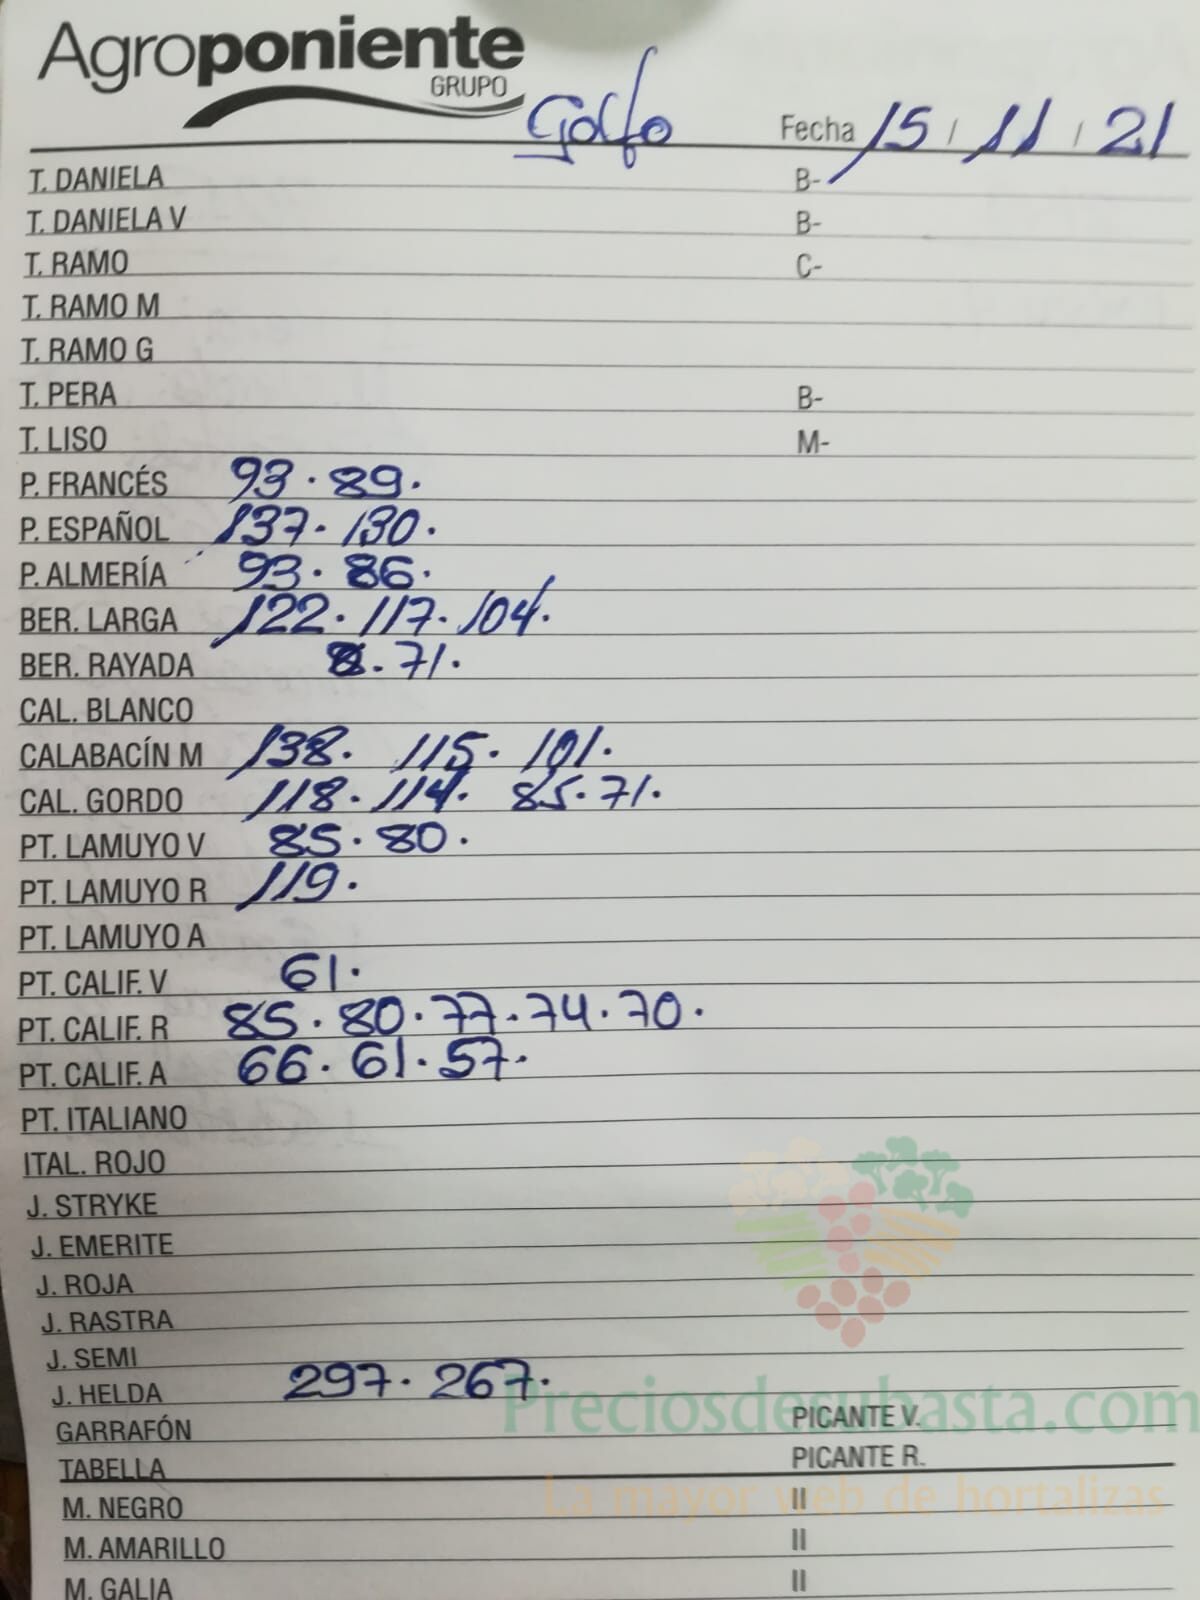 Agroponiente
GRUPO
Golfo Fecha 15 / 11 / 21
T. DANIELA B-
T. DANIELA V B-
T. RAMO C-
T. RAMO M
T. RAMO G
T. PERA B-
T. LISO M-
P. FRANCÉS 93. 89.
P. ESPAÑOL 137. 130.
P. ALMERÍA 93. 86.
BER. LARGA 122. 117. 104.
BER. RAYADA 71.
CAL. BLANCO
CALABACÍN M 138. 115. 101.
CAL. GORDO 118. 114. 85. 71.
PT. LAMUYO V 85. 80.
PT. LAMUYO R 119.
PT. LAMUYO A
PT. CALIF. V 61.
PT. CALIF. R 85. 80. 77. 74. 70.
PT. CALIF. A 66. 61. 57.
PT. ITALIANO
ITAL. ROJO
J. STRYKE
J. EMERITE
J. ROJA
J. RASTRA
J. SEMI
J. HELDA 297. 267.
Preciosdesubasta.com
GARRAFÓN PICANTE V.
TABELLA PICANTE R.
La mayor web de hortalizas
M. NEGRO II
M. AMARILLO II
M. GALIA II